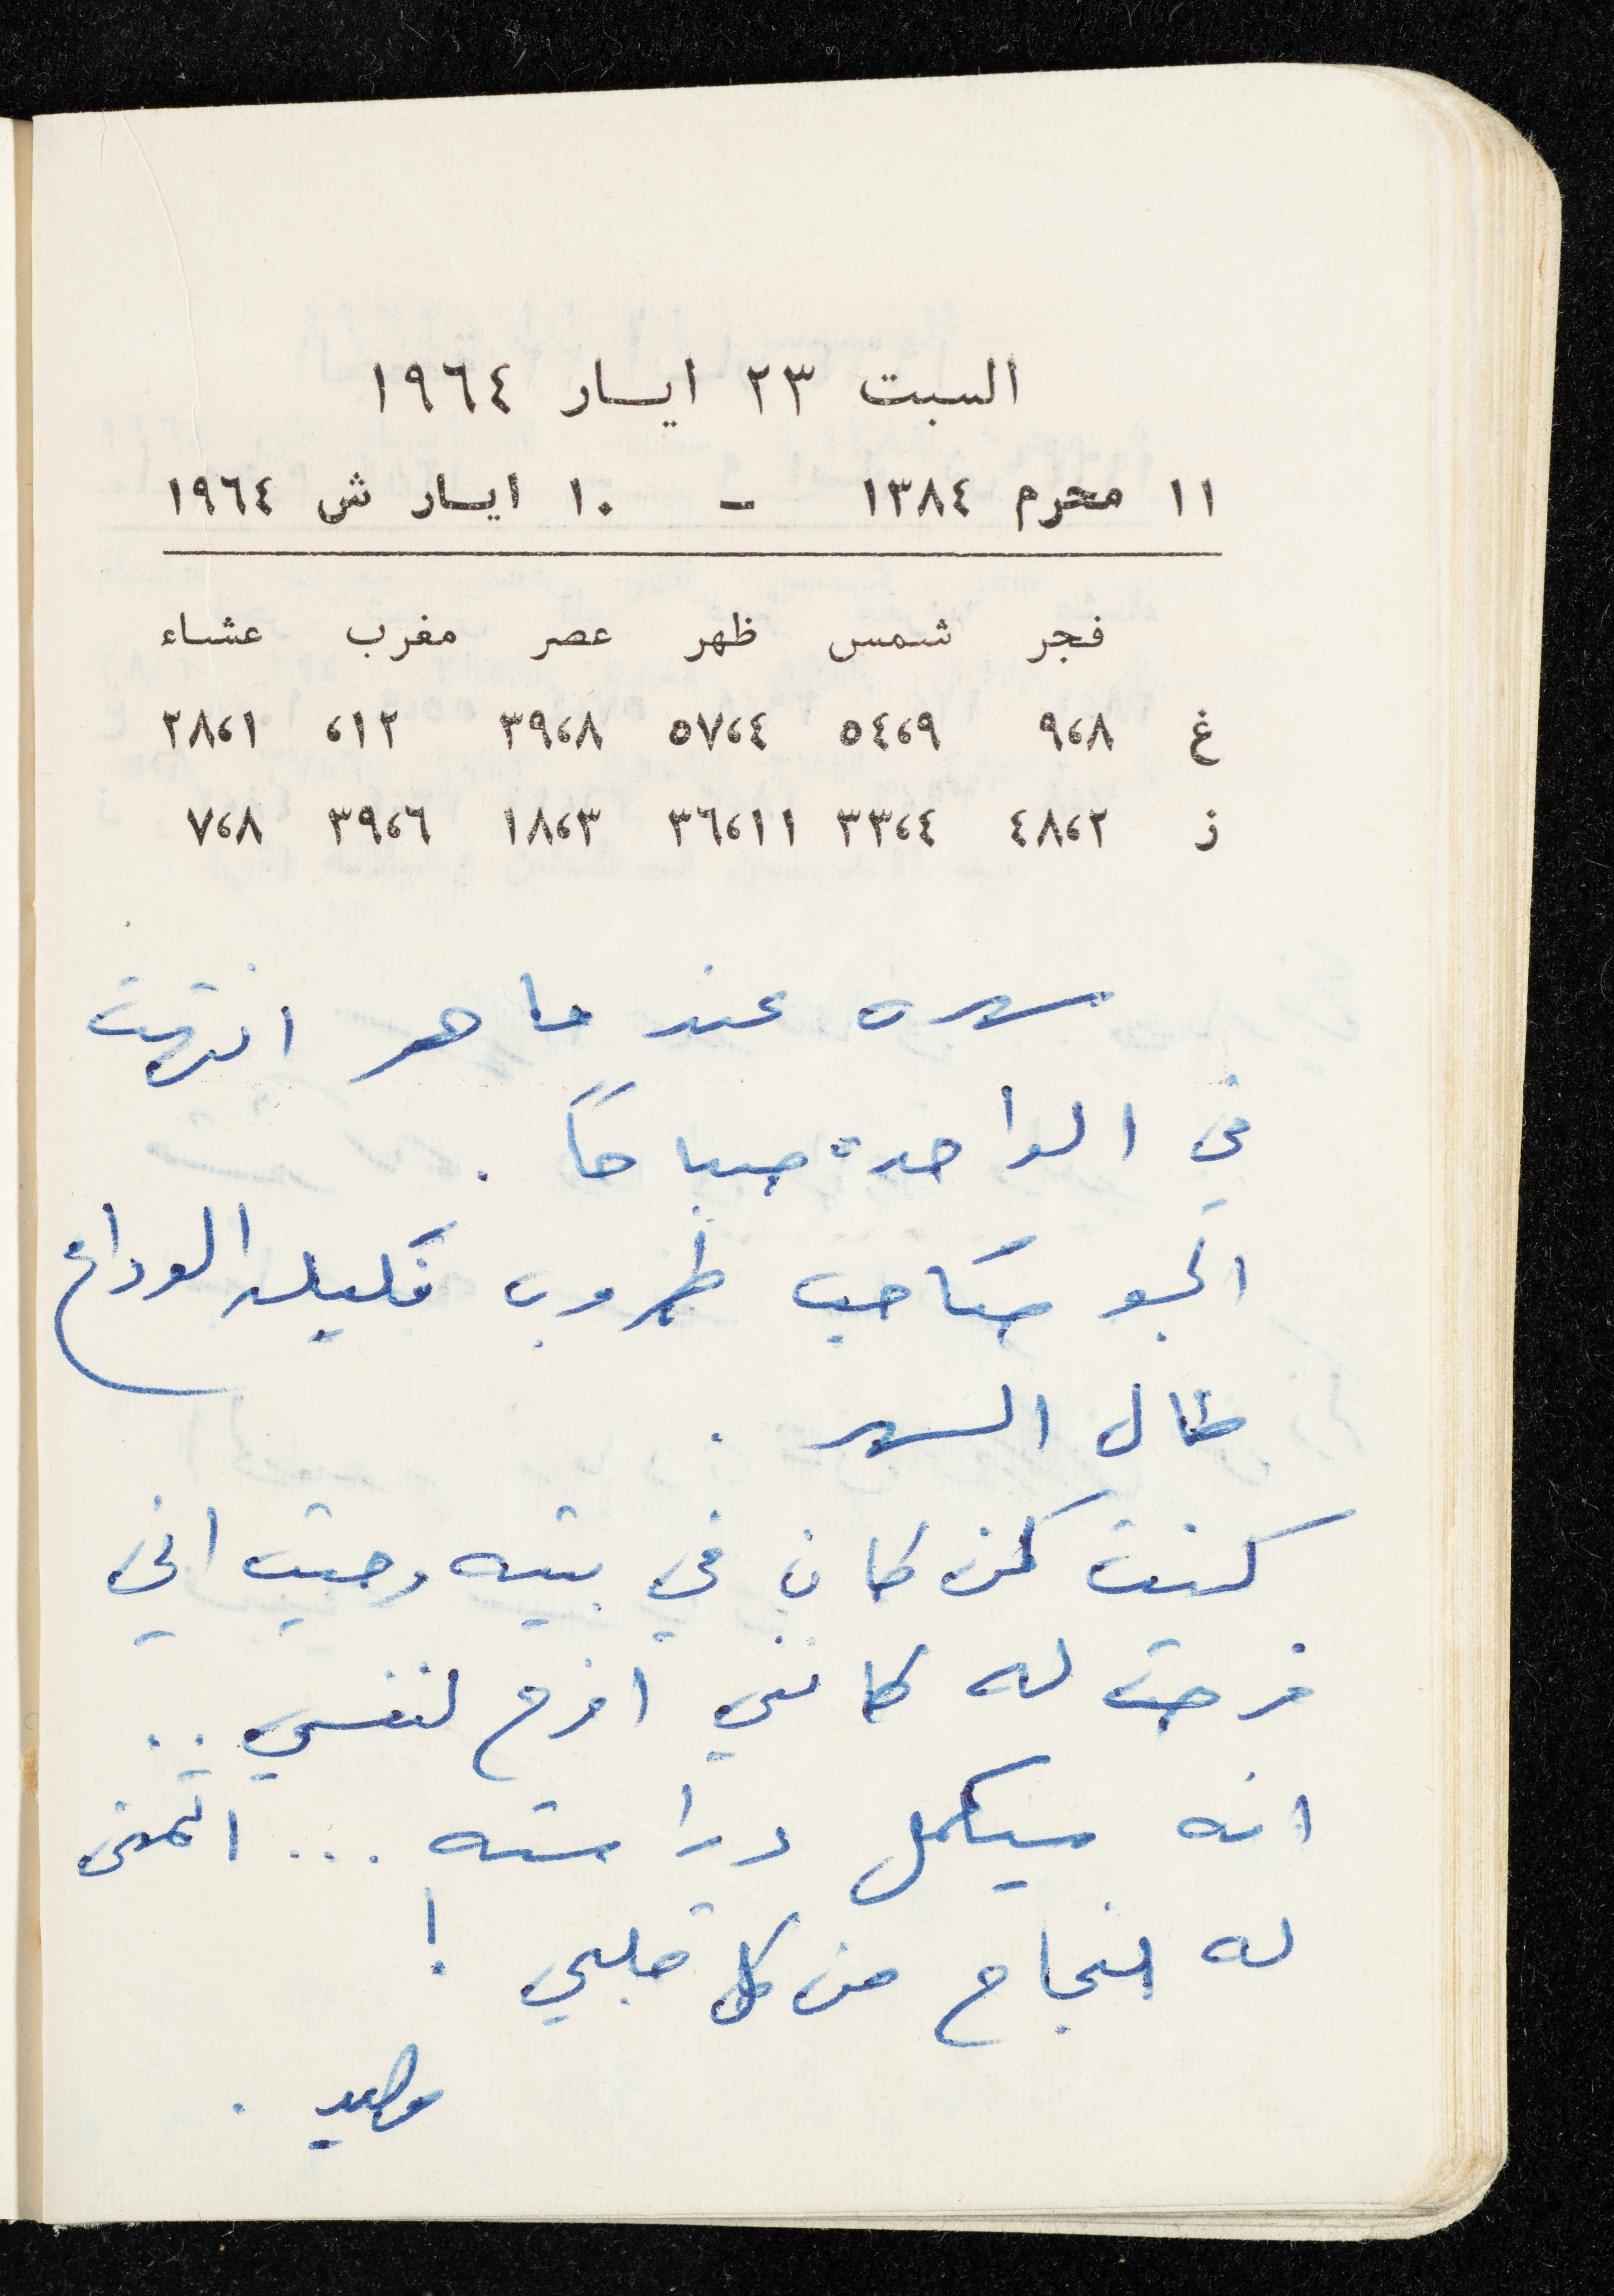 السبت ٢٣ ايار ١٩٦٤
١١ محرم ١٣٨٤ - ١٠ ايار ش ١٩٦٤
فجر شمس ظهر عصر مغرب عشاء
غ ٩،٨ ٥٤،٩ ٥٧،٤ ٣٩،٨ ،١٢ ٢٨،١
ز ٤٨،٢ ٣٣،٤ ٣٦،١١ ١٨،٣ ٣٩،٦ ٧،٨
سهرة عند ماهر انتهت
في الواحدة صباحاً .
الجو صاحب طروب فليلة الوداع
طال السهر .
كنت كمن كان في بيته وحيت اني
فرحت له كانني افرح لنفسي ..
انه سيكمل دراسته ... اتمنى
له النجاح من كل قلبي !
وليد .